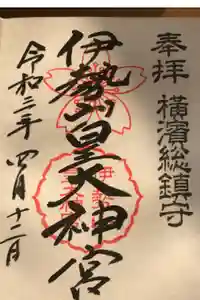 奉拝 横濱総鎮守
伊勢山皇大神宮
令和三年四月十二日